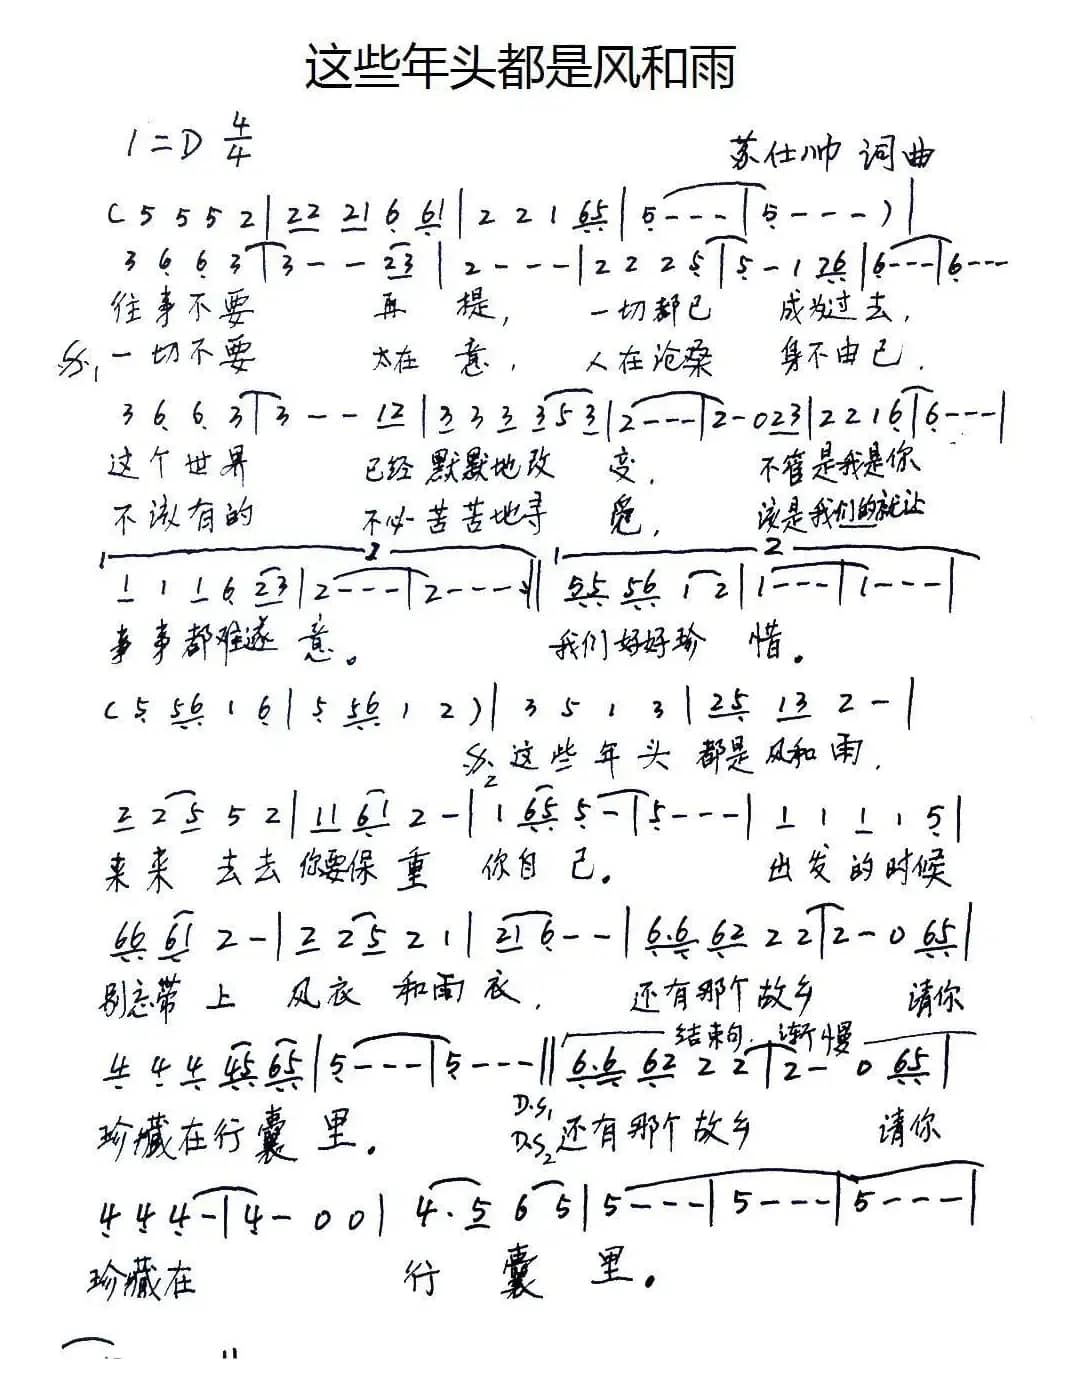 这些年头都是风和雨
1=D 4/4
苏仕帅 词曲
( 5 5 5 2 | 22 21 6 61 | 2 2 1 65 | 5 - - - | 5 - - - ) |
3 6 6 3 | 3 - - 23 | 2 - - - | 2 2 2 5 | 5 - 1 26 | 6 - - - | 6 - - -
往事不要 再提, 一切都已 成为过去,
𝄋1 一切不要 太在意, 人在沧桑 身不由己.
3 6 6 3 | 3 - - 12 | 3 3 3 3 5 3 | 2 - - - | 2 - 0 23 | 2 2 1 6 | 6 - - - |
这个世界 已经默默地改变, 不管是我是你
不该有的 不必苦苦地寻觅, 该是我们的就让
1 2 2
1 1 1 6 23 | 2 - - - | 2 - - - :|| 55 56 1 2 | 1 - - - | 1 - - - |
事事都难遂意。 我们好好珍惜.
( 5 56 1 6 | 5 56 1 2 ) | 3 5 1 3 | 25 13 2 - |
𝄋2 这些年头 都是风和雨,
2 2 5 5 2 | 11 61 2 - | 1 65 5 - | 5 - - - | 1 1 1 1 5 |
来来去去你要保重 你自己. 出发的时候
66 61 2 - | 2 2 5 2 1 | 21 6 - - | 6.6 62 2 2 | 2 - 0 65 |
别忘带上 风衣和雨衣, 还有那个故乡 请你
结束句.渐慢
4 4 4 45 65 | 5 - - - | 5 - - - || 6.6 62 2 2 | 2 - 0 65 |
D.S1
珍藏在行囊里. D.S2 还有那个故乡 请你
4 4 4 - | 4 - 0 0 | 4 . 5 6 5 | 5 - - - | 5 - - - | 5 - - - |
珍藏在 行囊里.